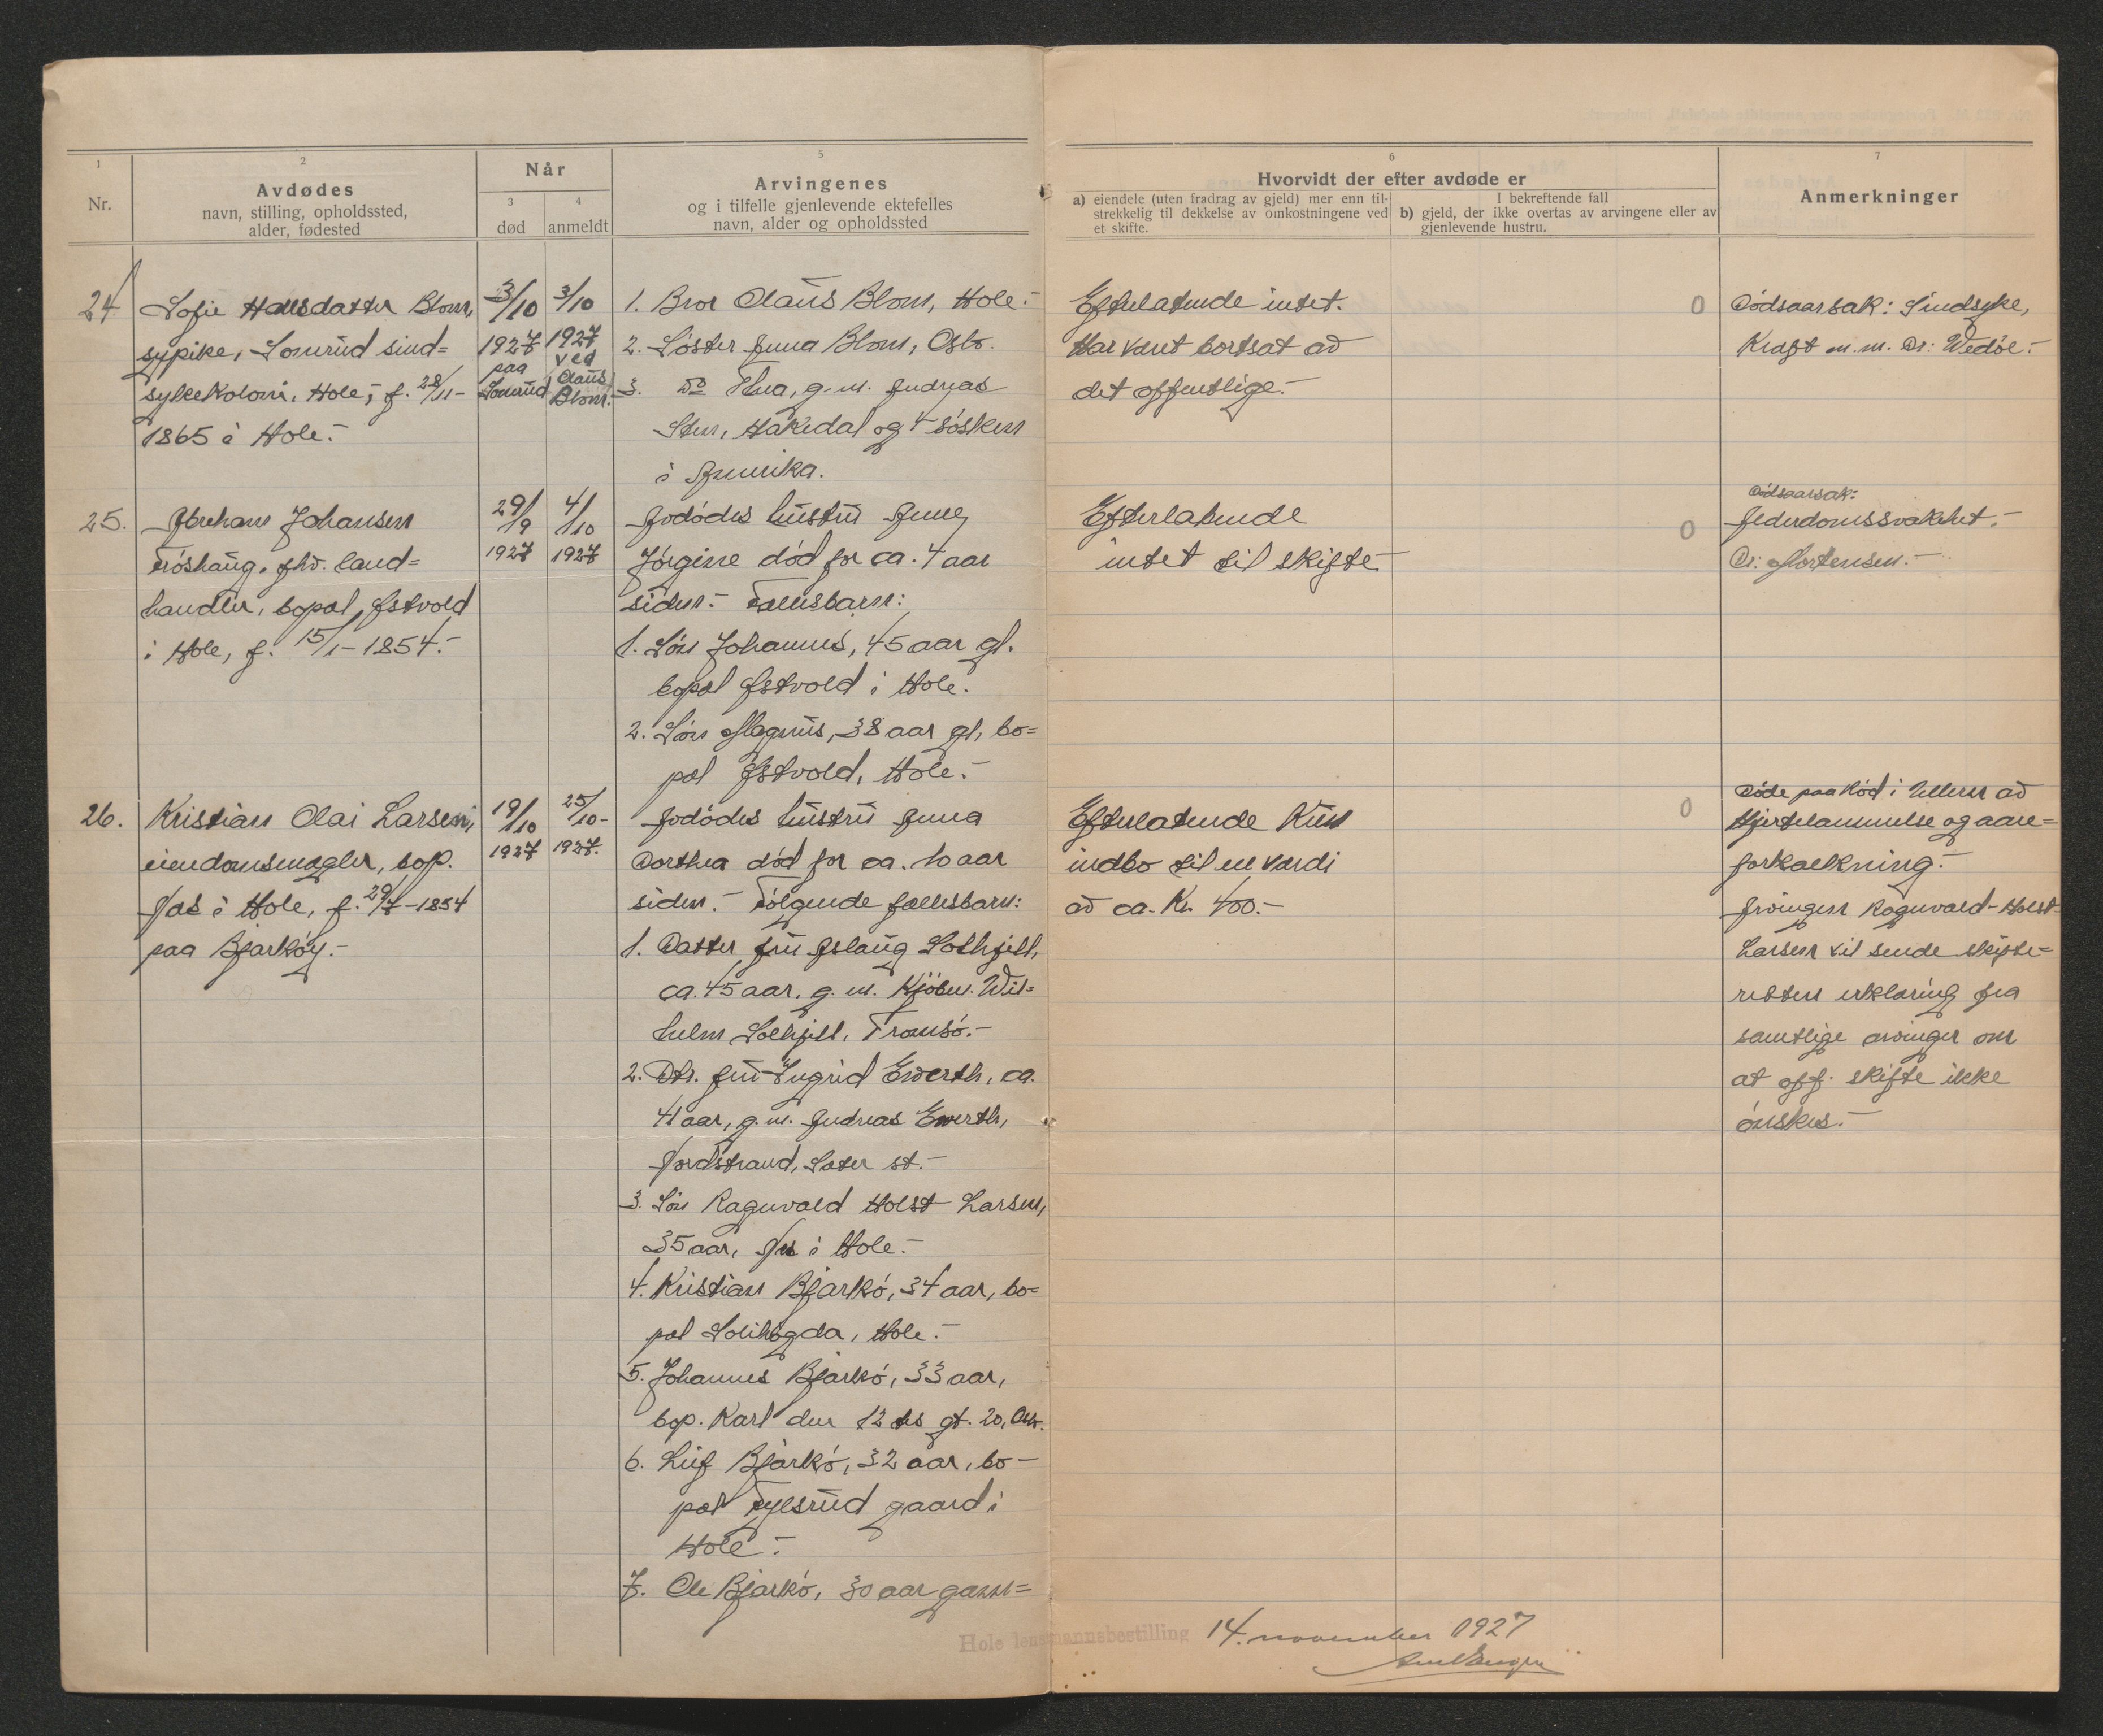 1
Nr.
2
Avdødes
navn, stilling, opholdssted,
alder, fødested
Når
3
død
4
anmeldt
5
Arvingenes
og i tilfelle gjenlevende ektefelles
navn, alder og opholdssted
6
Hvorvidt der efter avdøde er
a) eiendele (uten fradrag av gjeld) mer enn til-
strekkelig til dekkelse av omkostningene ved
et skifte.
I bekreftende fall
b) gjeld, der ikke overtas av arvingene eller av
gjenlevende hustru.
7
Anmerkninger
24
Sofie Hansdatter Blom,
sypike, Somrud sind=
sykekoloni, Hole, f. 28/11-
1865 i Hole.-
3/10
1927
paa
Somrud
3/10
1927
ved
Claus
Blom.
1. Bror Claus Blom, Hole.-
2. Søster Anna Blom, Oslo.
3. do Thea, g.m. Andreas
Sten, Hakedal og 4 søsken
i Amerika.
Efterlatende intet.
Har været bortsat av
det offentlige.-
0
Dødsaarsak: Sindsyke,
Kræft m.m. Dr: Wedøe.-
25.
Abraham Johansen
Frøshaug, fhv. land=
handler, bopæl Østvold
i Hole, f. 15/1-1854.-
29/9
1927
4/10
1927
Avdødes hustru Anne
Jørgine død for ca. 4 aar
siden.- Fællesbarn:
1. Søn Johannes, 45 aar gl.
bopæl Østvold i Hole.-
2. Søn Magnus, 38 aar gl, bo=
pæl Østvold, Hole.-
Efterlatende
intet til skifte.-
0
Dødsaarsak:
Alderdomssvakhet.-
Dr: Mortensen.-
26.
Kristian Olai Larsen,
eiendomsmægler, bop.
Næs i Hole, f. 29/7-1854
paa Bjarkøy.-
19/10
1927
25/10-
1927.
Avdødes hustru Anna
Dorthea død for ca. 10 aar
siden.- Følgende fællesbarn:
1. Datter fru Aslaug Solhjell,
ca. 45 aar, g. m. Kjøbm. Wil=
helm Solhjell, Tromsø.-
2. Dtr. fru Ingrid Ewerth, ca.
41 aar, g.m. Andreas Ewerth,
Nordstrand, Sæter st.-
3. Søn Ragnvald Holst Larsen,
35 aar, Næs i Hole.-
4. Kristian Bjarkø, 34 aar, bo=
pæl Sollihøgda, Hole.-
5. Johannes Bjarkø, 33 aar,
bop. Karl den 12 tes gt. 20, Oslo.
6. Leif Bjarkø, 32 aar, bo-
pæl gaard i
Hole.-
7. Ole Bjarkø, 30 aar
Efterlatende kun
indbo til en værdi
av ca. Kr. 400.-
0
Døde paa Rød i Ullern av
Hjertelammelse og aare=
forkalkning.-
Arvingen Ragnvald Holst
Larsen vil sende skifte=
retten erklæring fra
samtlige arvinger om
at off. skifte ikke
ønskes.-
Hole lensmannsbestilling 14. november 1927